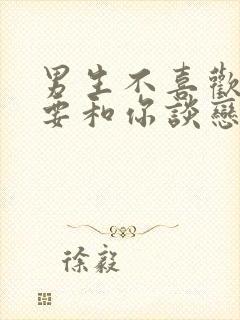 男生不喜歡
要和你談戀
徐毅